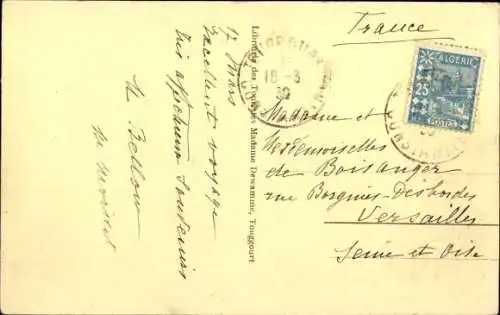 17 Mars
Excellent voyage
affectueux souvenirs
Librairie des Madame Dewamme, Touggourt
France
ALGERIE
25
POSTES
TOUGGOURT
18 -3
30
CONSTANTINE
Madame et
Mesdemoiselles
de Boisanger
rue Borgnis-Desbordes
Versailles
Seine et Oise